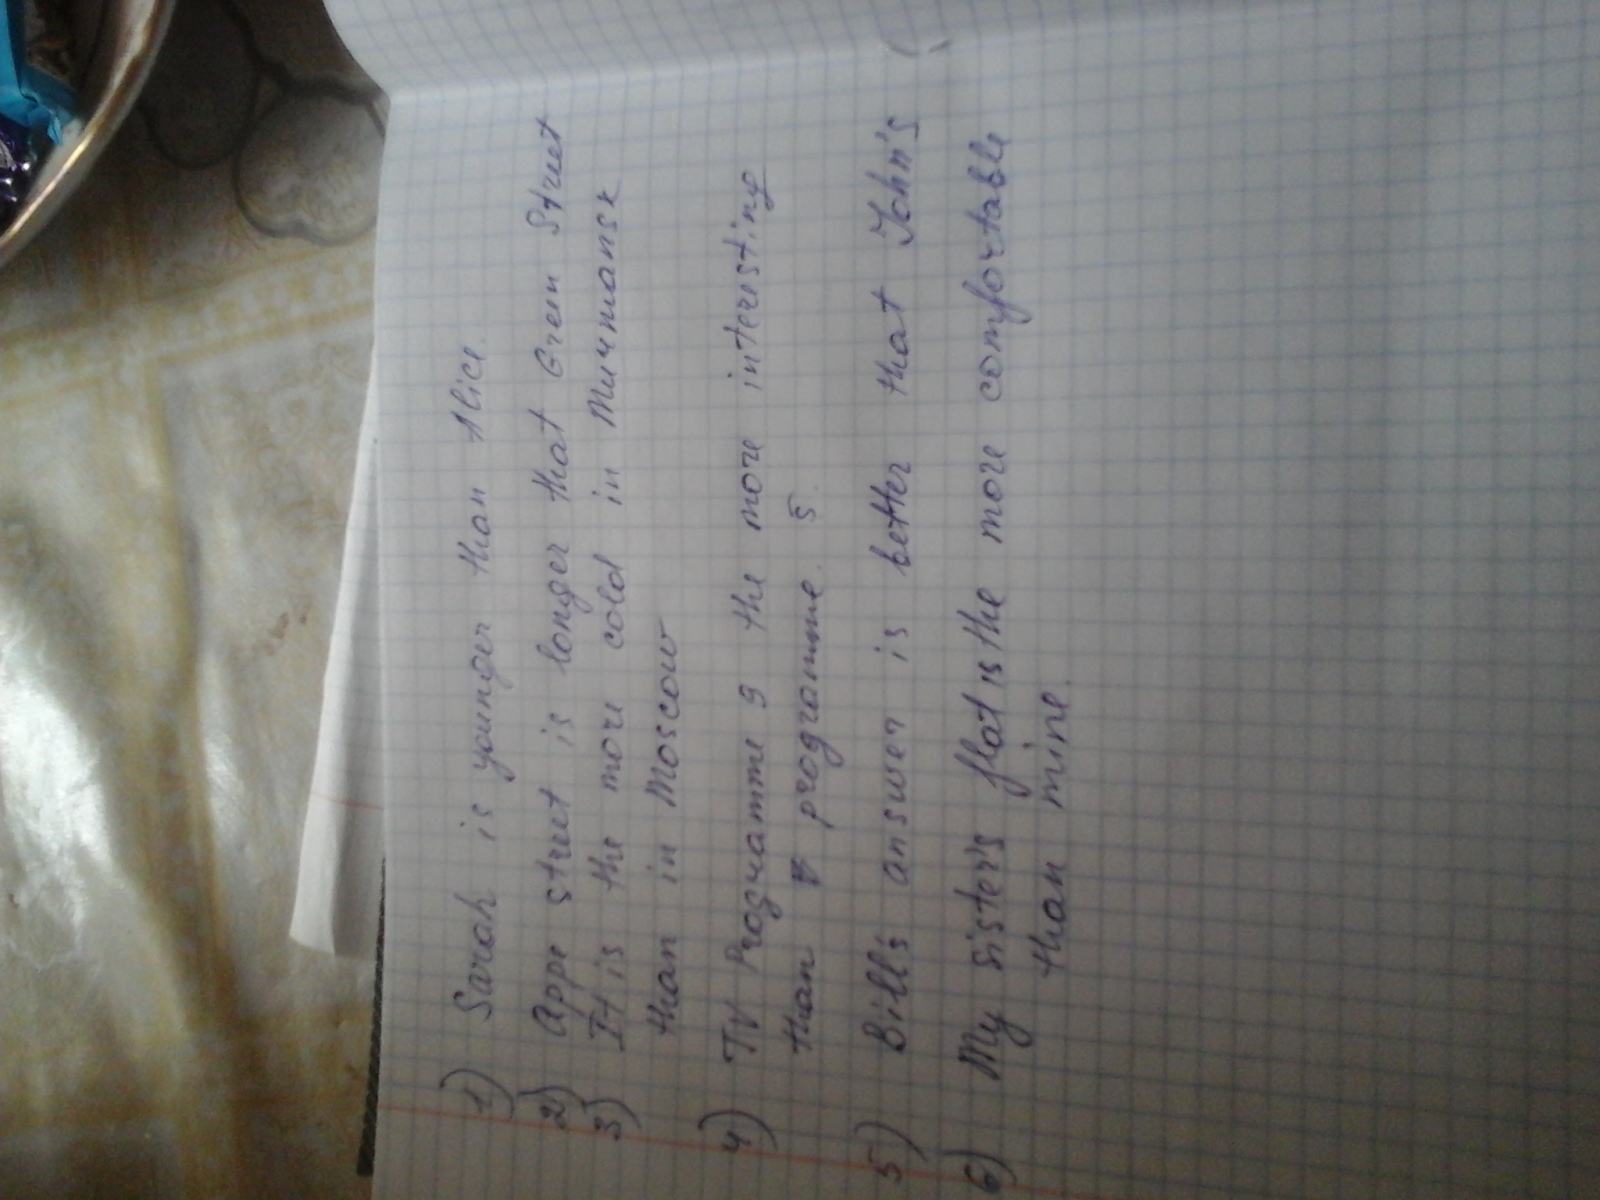 1) Sarah is younger than Alice.
2) Appe street is longer that Green Street
3) It is the more cold in Murmansk
than in Moscow
4) TV Programme 9 the more interesting
than programme. 5.
5) Bill's answer is better that John's
6) My sister's flat is the more comfortable
than mine.